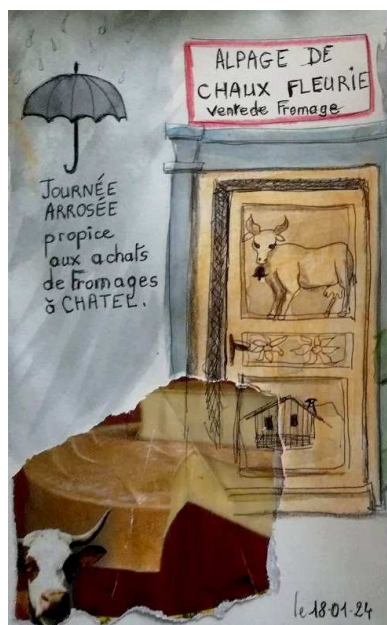 ALPAGE DE
CHAUX FLEURIE
vente de Fromage
JOURNÉE
ARROSÉE
propice
aux achats
de Fromages
à CHATEL.
le 18.01.24